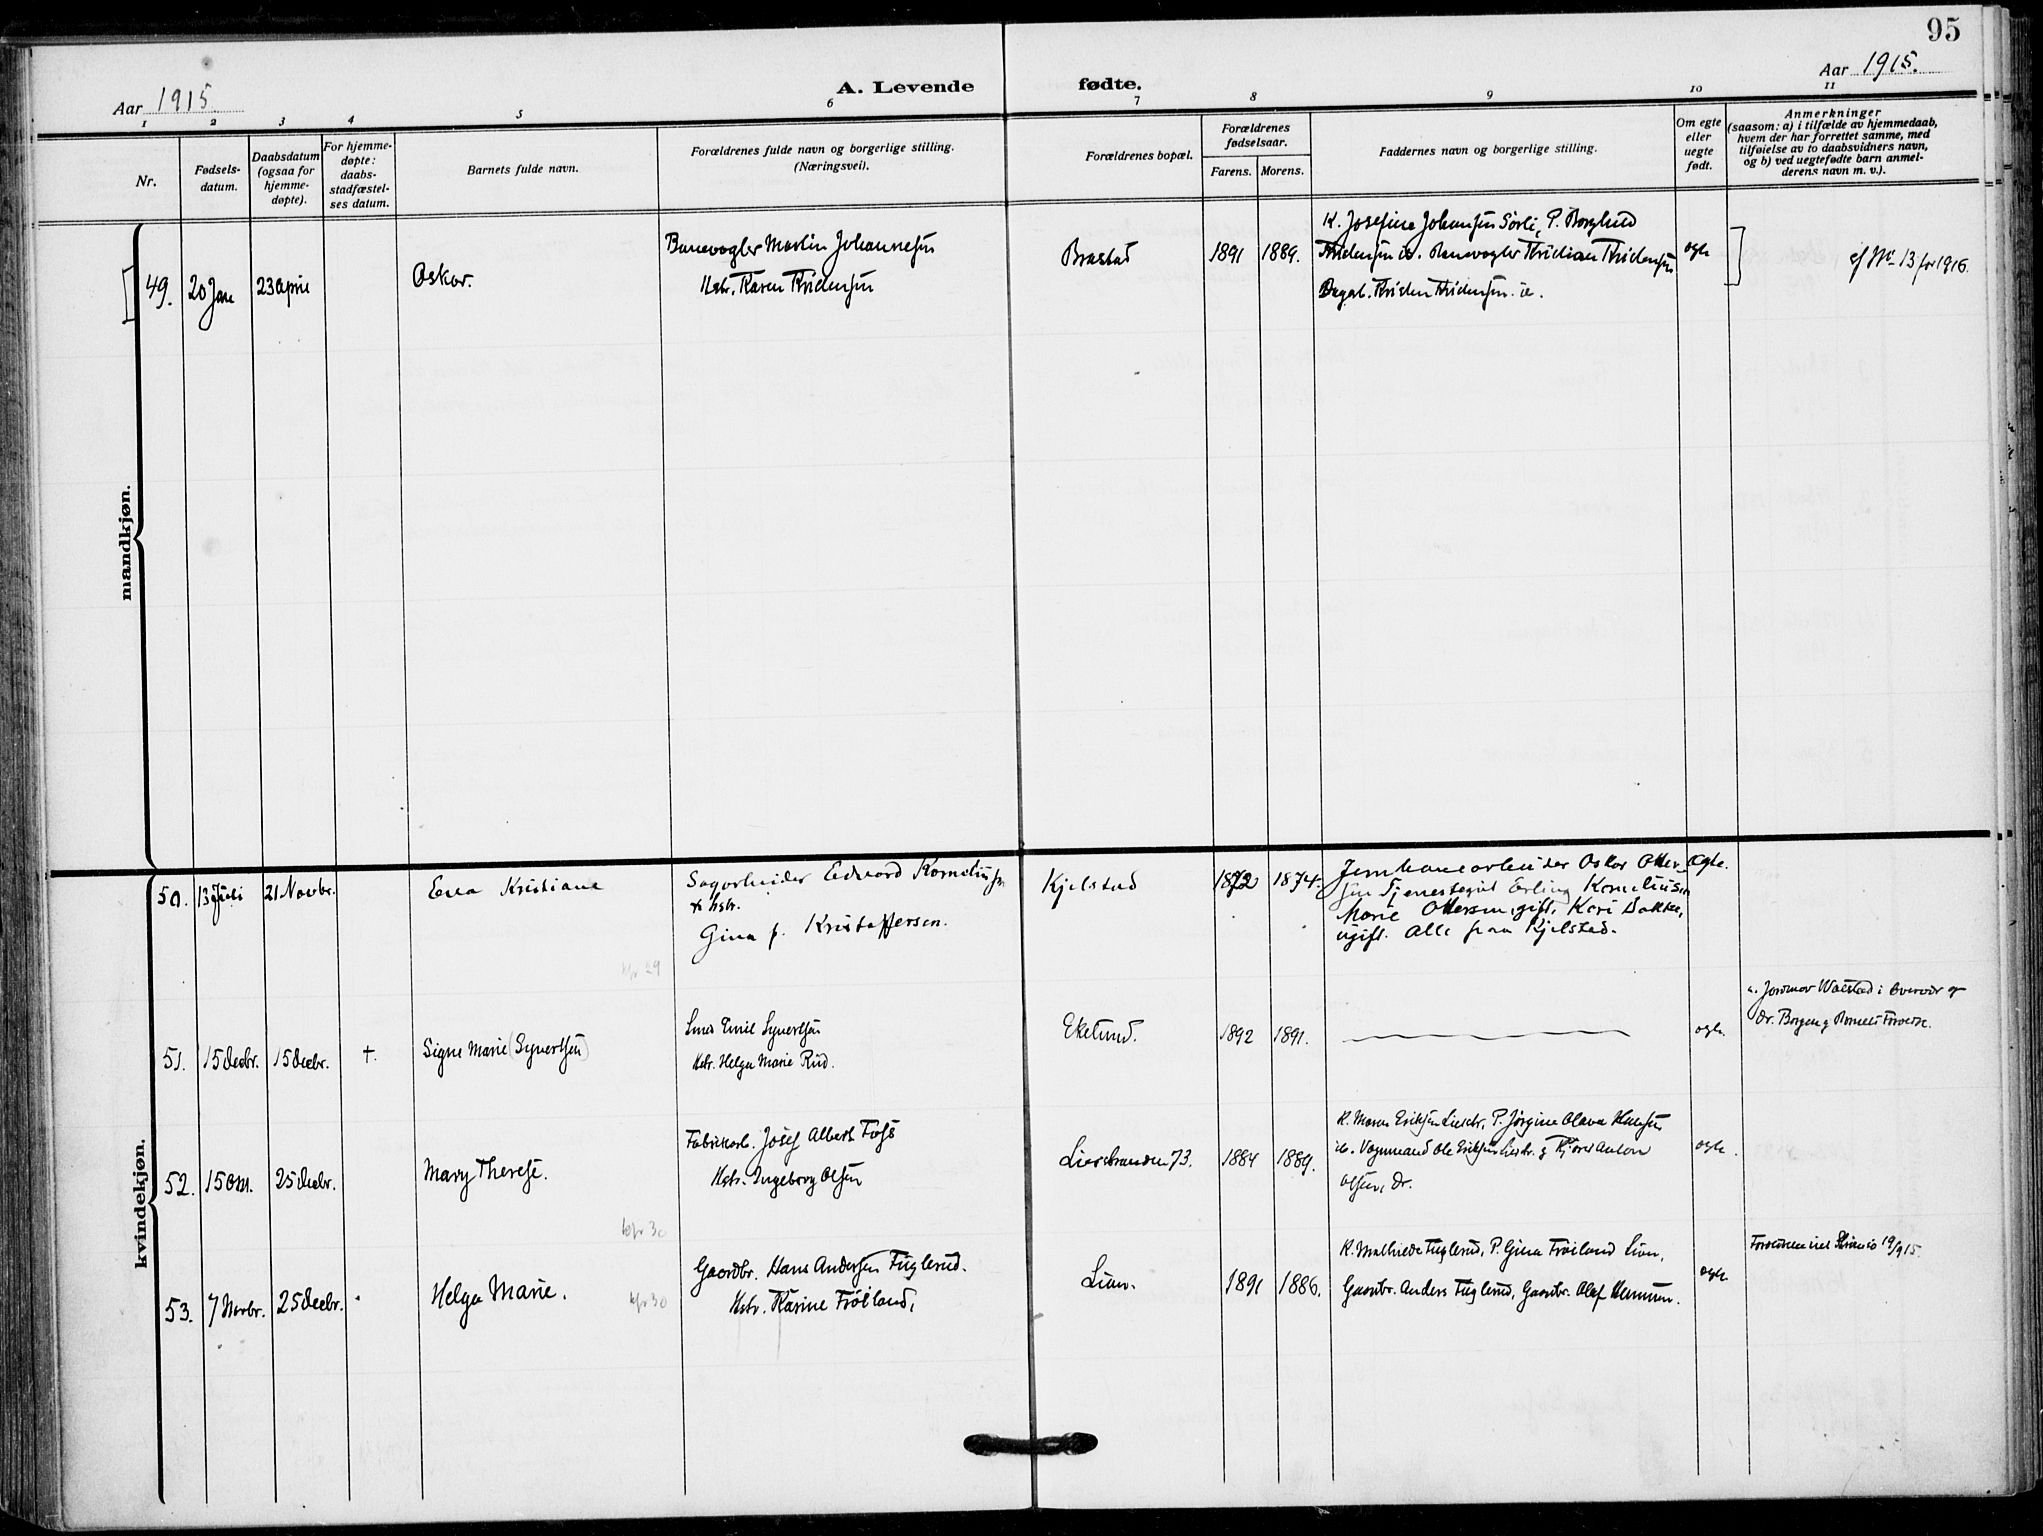 95
Aar 1915
A. Levende fødte.
Aar 1915.
1 2 3 4 5 6 7 8 9 10 11
Nr.
Fødsels-
datum.
Daabsdatum
(ogsaa for
hjemme-
døpte).
For hjemme-
døpte:
daabs-
stadfæstel-
ses datum.
Barnets fulde navn.
Forældrenes fulde navn og borgerlige stilling.
(Næringsvei).
Forældrenes bopæl.
Forældrenes
fødselsaar.
Farens. Morens.
Faddernes navn og borgerlige stilling.
Om egte
eller
uegte
født.
Anmerkninger
(saasom: a) i tilfælde av hjemmedaab,
hvem der har forrettet samme, med
tilføielse av to daabsvidners navn,
og b) ved uegtefødte barn anmel-
derens navn m. v.).
mandkjøn.
49. 20 Jan 23 April
Oskar.
Banevogter Martin Johannesen
Hstr. Karen
Brastad
1891 1889.
K. Josefine Johansen Sørli, P. Borghild
Banevogter Kristian
Dagarb.
egte
cf Nr 13 for 1916.
kvindekjøn.
50. 13 Juli 21 Novbr.
Eva Kristiane
Sagarbeider Edvard Korneliusen
& hstr.
Gina f. Kristoffersen.
Kjelstad
1872 1874.
Jernbanearbeider Oskar Otter-
sen Tjenestegut Erling Korneliusen
Marie Ottersen, gift, Kari Bakke,
ugift. Alle fra Kjelstad.
Egte.
kfr 29
51. 15 Decbr. 15 Decbr. +.
Signe Marie (Syvertsen)
Smed Emil Syvertsen
Hstr. Helga Marie Rud.
Ekelund.
1892 1891.
egte.
a. Jordmor Wolstad i overvær af
Dr. Borgen &
52. 15 Okt. 25 Decbr.
Mary Therese.
Fabrikarb. Josef Albert Foss
Hstr. Ingeborg Olsen
Liersbranden 73.
1884 1889.
K. Maren Eriksen Liersbr, P. Jørgine Olava Hansen
ib. Vognmand Ole Eriksen Liersbr. & Anton
Olsen, Dr.
egte.
kfr 30
53. 7 Novbr. 25 Decbr.
Helga Marie.
Gaardbr. Hans Andersen Fuglerud.
Hstr. Karine Frøiland,
Lian.
1891 1886.
K. Mathilde Fuglerud, P. Gina Frøiland Lian,
Gaardbr. Anders Fuglerud, Gaardbr. Olaf
egte.
19/9 15.
kfr 30